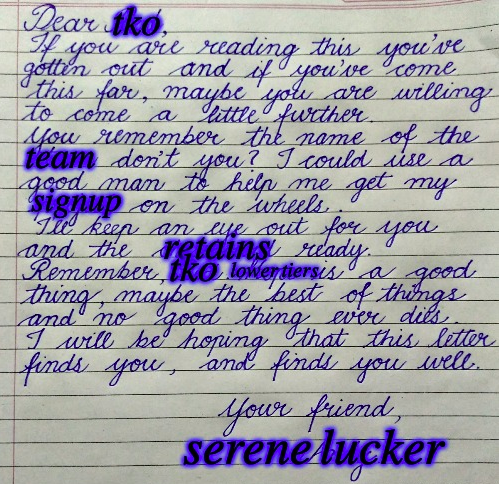 Dear tko,
If you are reading this you've
gotten out and if you've come
this far, maybe you are willing
to come a little further.
you remember the name of the
team don't you? I could use a
good man to help me get my
signup on the wheels.
I'll keep an eye out for you
and the retains ready.
Remember, tko lowertiers is a good
thing, maybe the best of things
and no good thing ever dies.
I will be hoping that this letter
finds you, and finds you well.
Your friend,
serene lucker